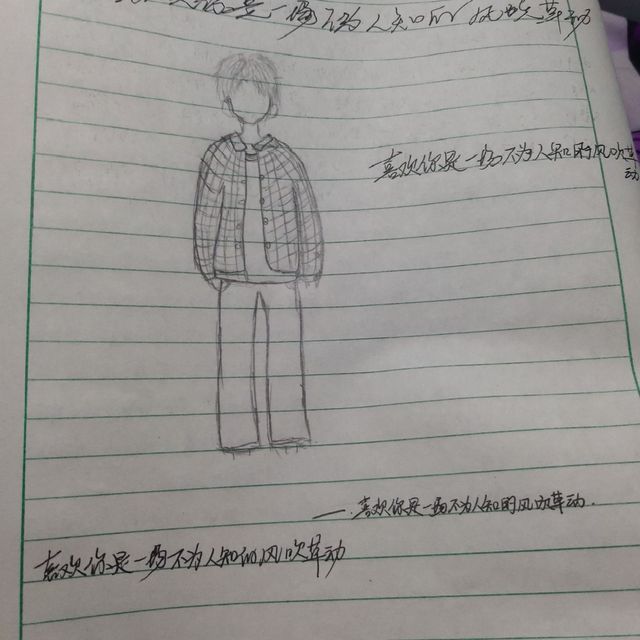 你是一场不为人知的风吹草动
喜欢你是一场不为人知的风吹草
动
——喜欢你是一场不为人知的风吹草动.
喜欢你是一场不为人知的风吹草动